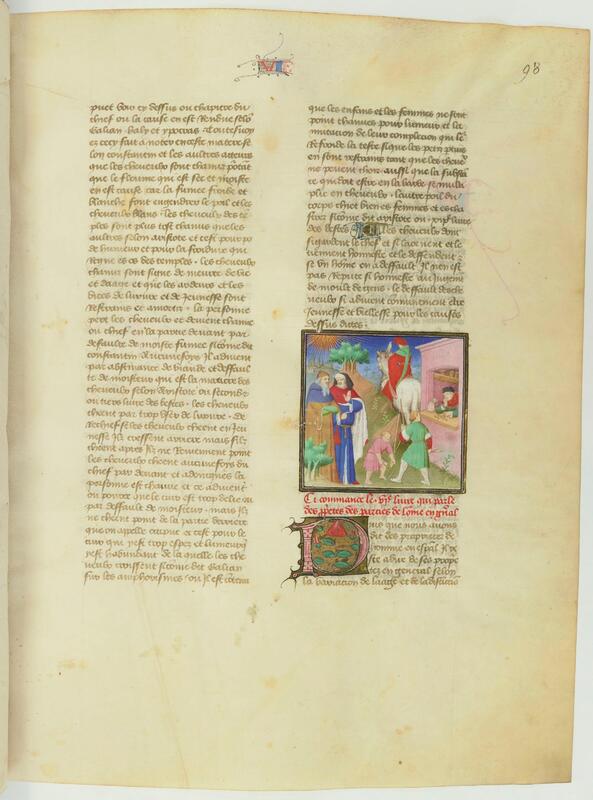 VI
98
puet bou cy dessus ou chapitre du
chief ou la cause en est rendue selō
Galian haly et ypocras
ycy fait a noter en ceste matere se
lon constantin et les aultres acteurs
que les cheueulx sont chanus
que le fleume qui est sec et moiste
en est cause car la fumee froide et
blanche sont engendrer le poil et les
cheueulx blans · les cheueulx des tē
ples sont plus tost chanus que les
aultres selon aristote et cest pour po
de humeur et pour la froidure qui
regne es os des temples · les cheueulx
chanus sont signe de meurte de vie
et daage et que les ardeurs et les
vices de luxure et de jeunesse sont
refrains et amortis · la personne
pert les cheueulx et deuient chauue
ou chief en la partie deuant par
defaulte de moiste fumee sicōme dit
constantin aucunesfoys il aduient
par abstinance de viande et deffaul
te de moisteur qui est la matiere des
cheueulx selon aristote ou second
ou tiers liure des bestes · les cheueulx
cheent par trop user de luxure · de
rechief se les cheueulx cheent en jeu
nesse ilz croissent arriere mais silz
cheent apres ilz ne reuiennent point
les cheueulx cheent aucunesfoys du
chief par deuant et adonques la
personne est chauue et ce aduient
ou pource que le cuir est trop delie ou
par deffault de moisteur · mais ilz
ne cheent point de la partie derriere
que on appelle et cest pour le
cuir qui yest trop espez et lumeur
yest habundant de la quelle les che
ueulx croissent sicōme dit Galian
sur les amphorismes · ou il est cōtenu
que les enfans et les femmes ne sont
point chauues pour lumeur et le
mutation de leur complexion qui le
refroide la teste si que les petis
en sont restrains tant que les cheueᵘ
ne peuent cheoir · aussi que la substā
ce qui doit estre en la barbe se multi
plie en cheueulx · leutre poil du
corps chiet bien es femmes et es cha
strez sicōme dit aristote ou · liure
des bestes les cheueulx dont
sigardent le chief et si laornent et le
tiennent honneste et le deffendent ·
si un hōme en a deffault il nen est
pas repute si honneste au jugem̄t
de moult de gens · le deffault des che
ueulx si aduient communement en
jeunesse et vieillesse pour les causes
dessus dites ·
Ci commance le · vjᵉ liure qui parle
des ꝓprietes des parties de lōme en gñal
Puis que nous auons
dit les proprietez de
lomme en espāl il re
ste a dire de ses propri
etez en general selon
la variation de laage et de la distictiō